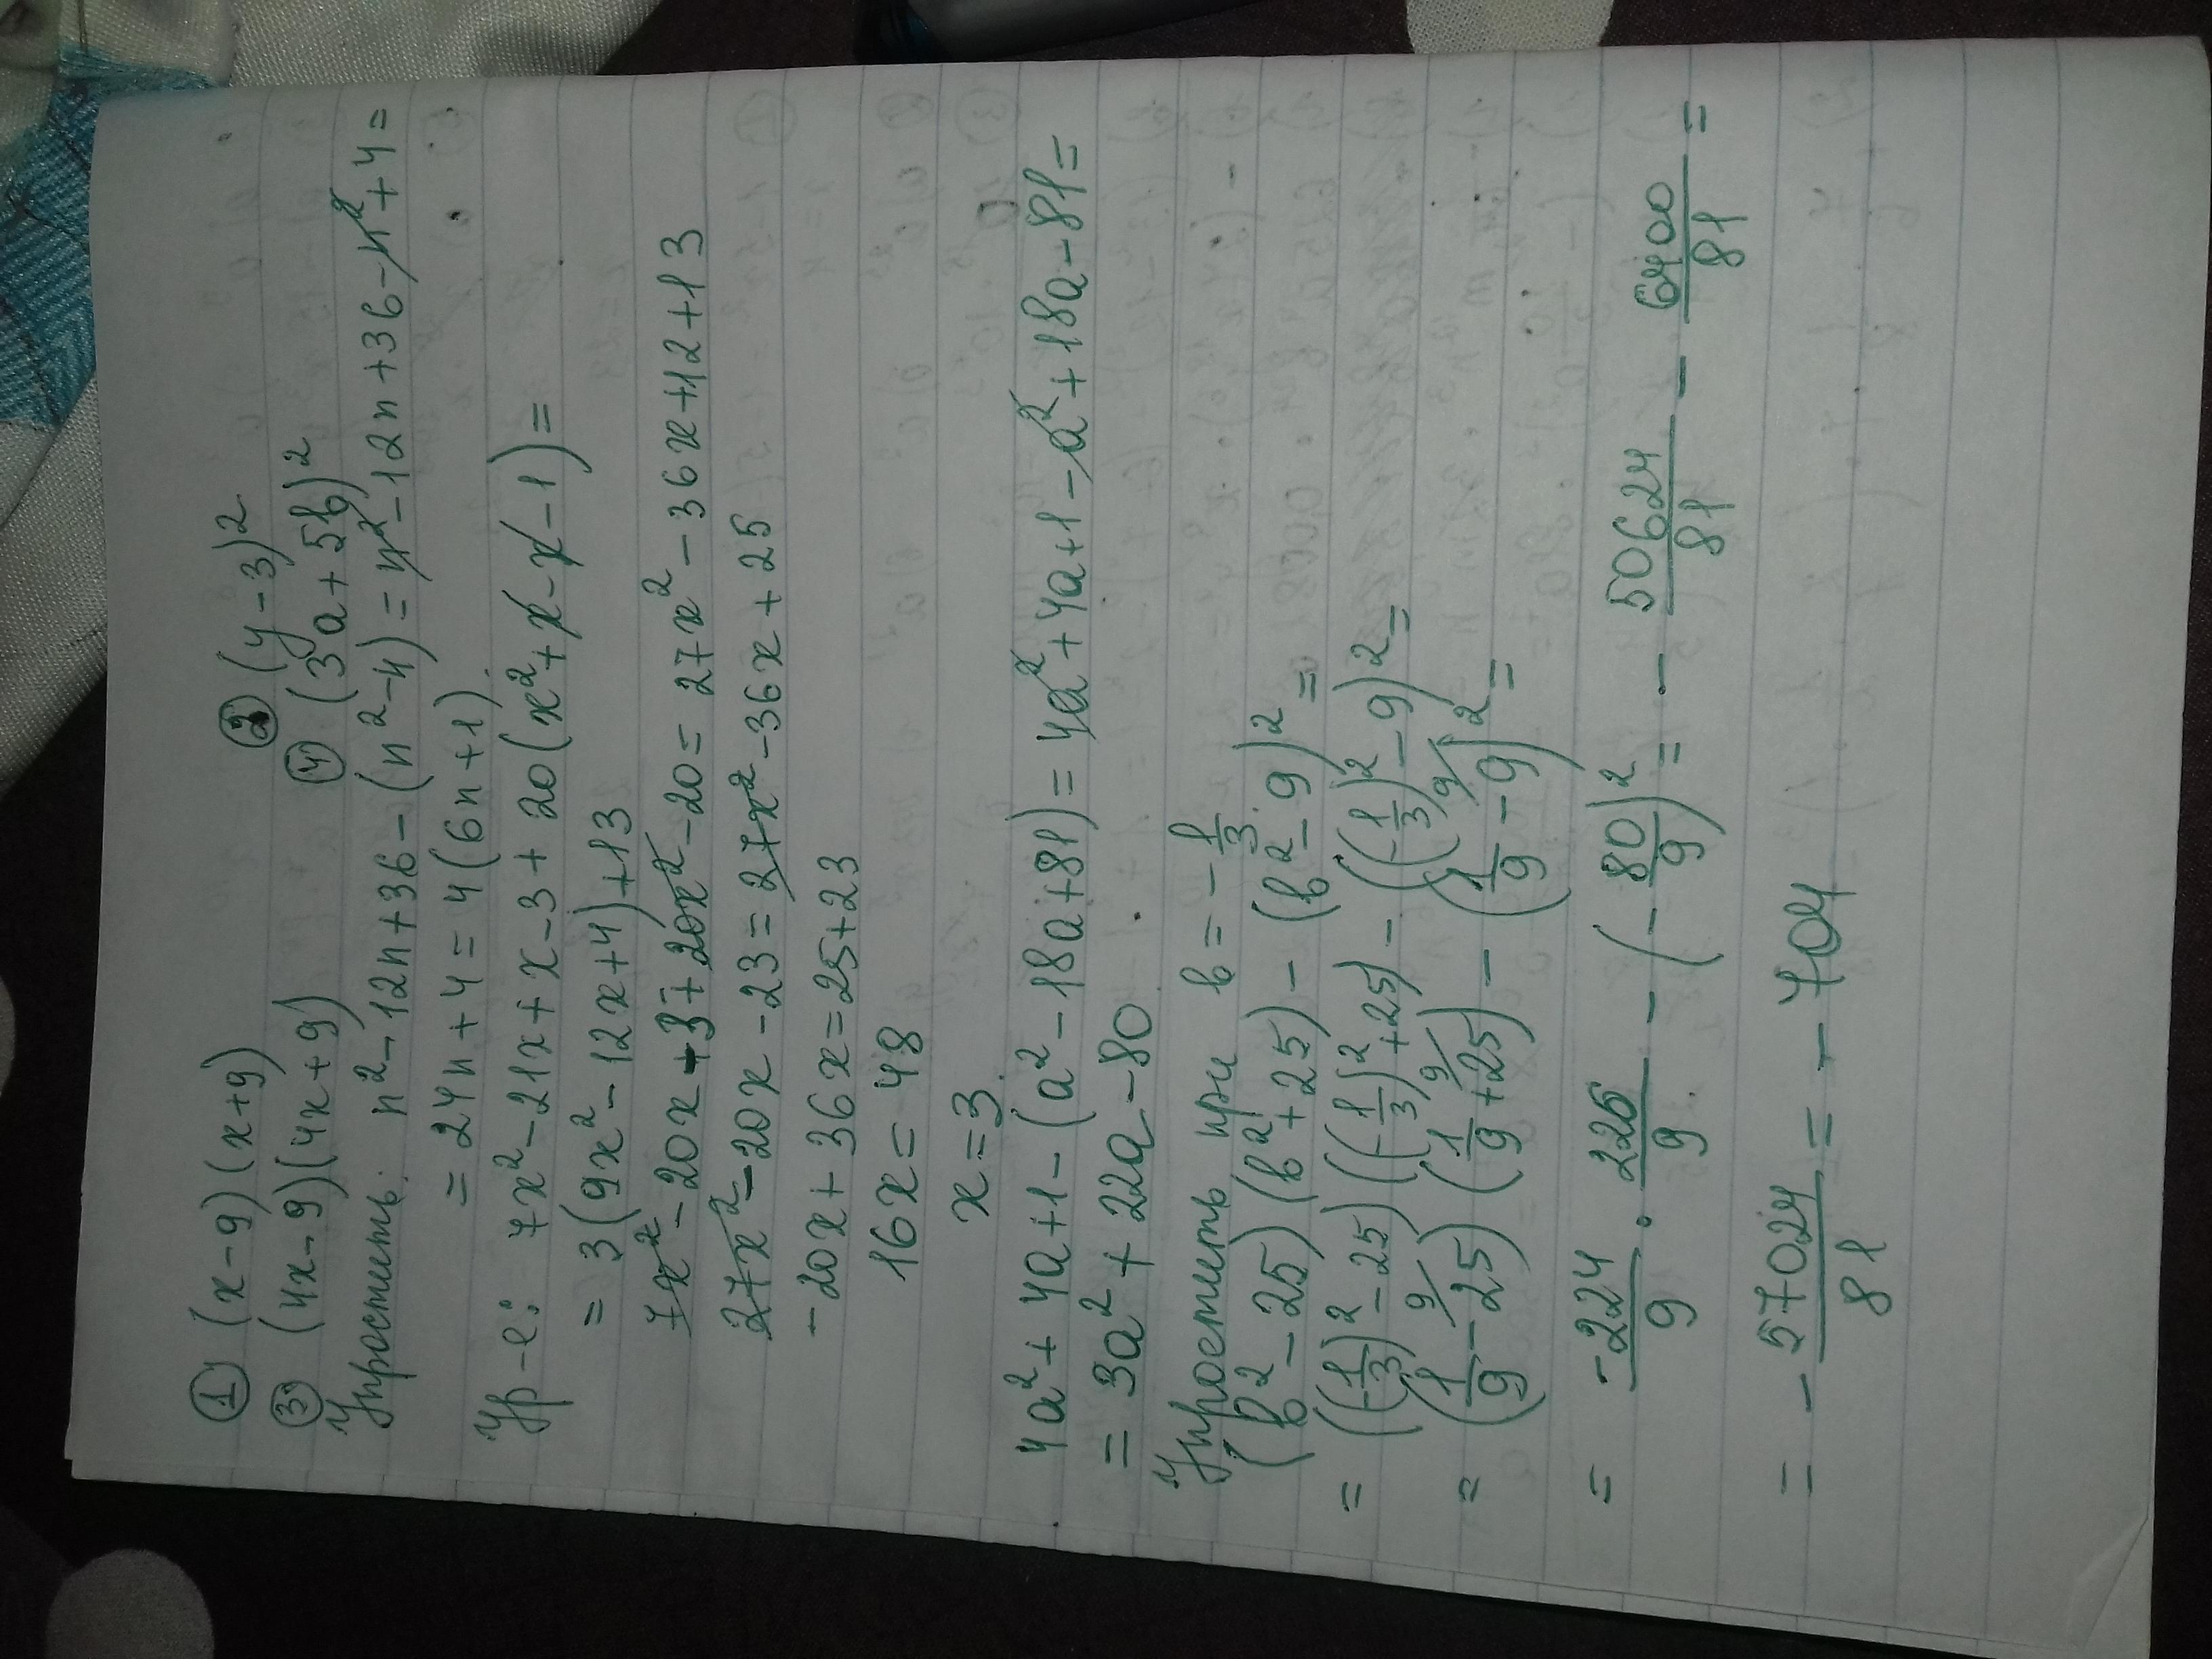 ① (x-9)(x+9) ② (y-3)²
③ (4x-9)(4x+9) ④ (3a+5b)²
Упростить: n²-12n+36-(n²-4)=n²-12n+36-n²+4=
=24n+4=4(6n+1).
Ур-е: 7x²-21x+x-3+20(x²+x-x-1)=
=3(9x²-12x+4)+13
7x²-20x-3+20x²-20=27x²-36x+12+13
27x²-20x-23=27x²-36x+25
-20x+36x=25+23
16x=48
x=3.
4a²+4a+1-(a²-18a+81)=4a²+4a+1-a²+18a-81=
=3a²+22a-80
Упростить при b=-1/3
(b²-25)(b²+25)-(b²-9)²=
=((-1/3)²-25)((-1/3)²+25)-((-1/3)²-9)²=
=(1/9-25)(1/9+25)-(1/9-9)²=
=-224/9·226/9-(-80/9)²=-50624/81-6400/81=
=-57024/81=-704